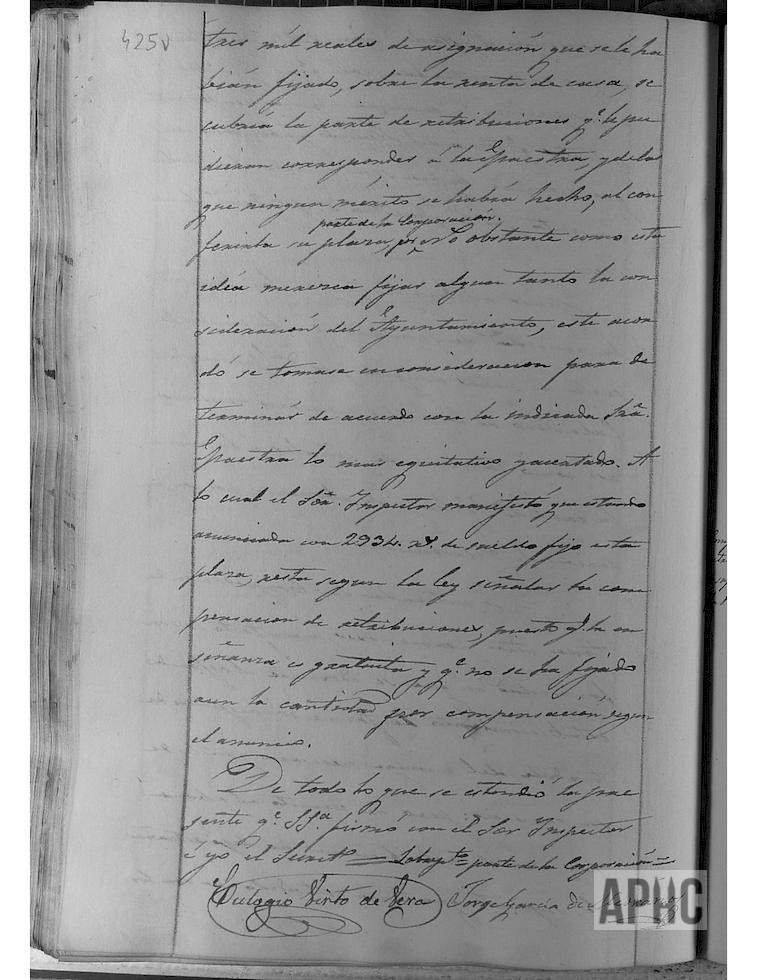 425v
tres mil reales de asignación que se le ha
bián fijado, sobre la renta de casa, se
cubria la parte de retribuciones q.e le pu
dieran corresponder á la Maestra, y de las
que ningun mérito se había hecho, al con
parte de la Corporación.
ferirla su plaza, por No obstante como esta
idéa merezca fijar algun tanto la con
sideración del Ayuntamiento, este acor
dó se tomase en consideracion para de
terminár de acuerdo con la indicada Srã.
Maestra lo mas equitativo y acertado. A
lo cual el Sõr. Inspector manifestó que estando
anunciada con 2934. rs. de sueldo fijo esta
plaza, resta segun la ley señalar la com
pensacion de retribuciones, puesto q.e la en
señanza es gratuita y q.e no se ha fijado
aun la cantidad por compensación segun
el anuncio.
De todo lo que se estendió la pre
sente q.e SSa. firmó con el Sor Inspector
é yo el Secret.o = parte de la Corporación =
Eulogio Virto de Vera Jorge Garcia de
APHC